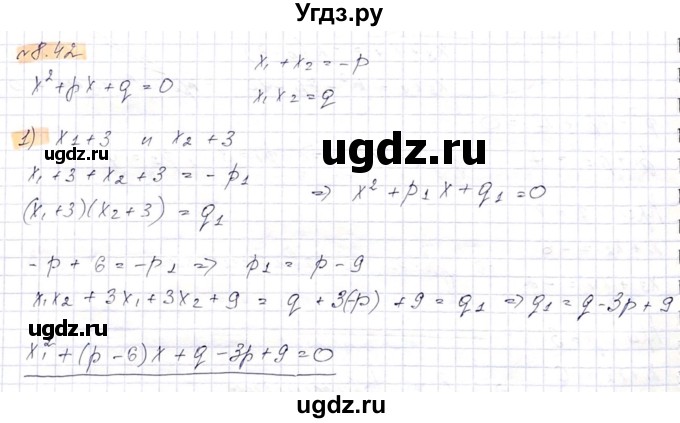 Угдз.ру
№8.42
x²+px+q=0
x₁+x₂=-p
x₁x₂=q
1) x₁+3 и x₂+3
ugdz.ru
ugdz.ru
x₁+3+x₂+3=-p₁
(x₁+3)(x₂+3)=q₁
⇒ x²+p₁x+q₁=0
ugdz.ru
-p+6=-p₁ ⇒ p₁=p-9
x₁x₂+3x₁+3x₂+9=q+3(-p)+9=q₁ ⇒ q₁=q-3p+9
ugdz.ru
ugdz.ru
x₁²+(p-6)x+q-3p+9=0
ugdz.ru